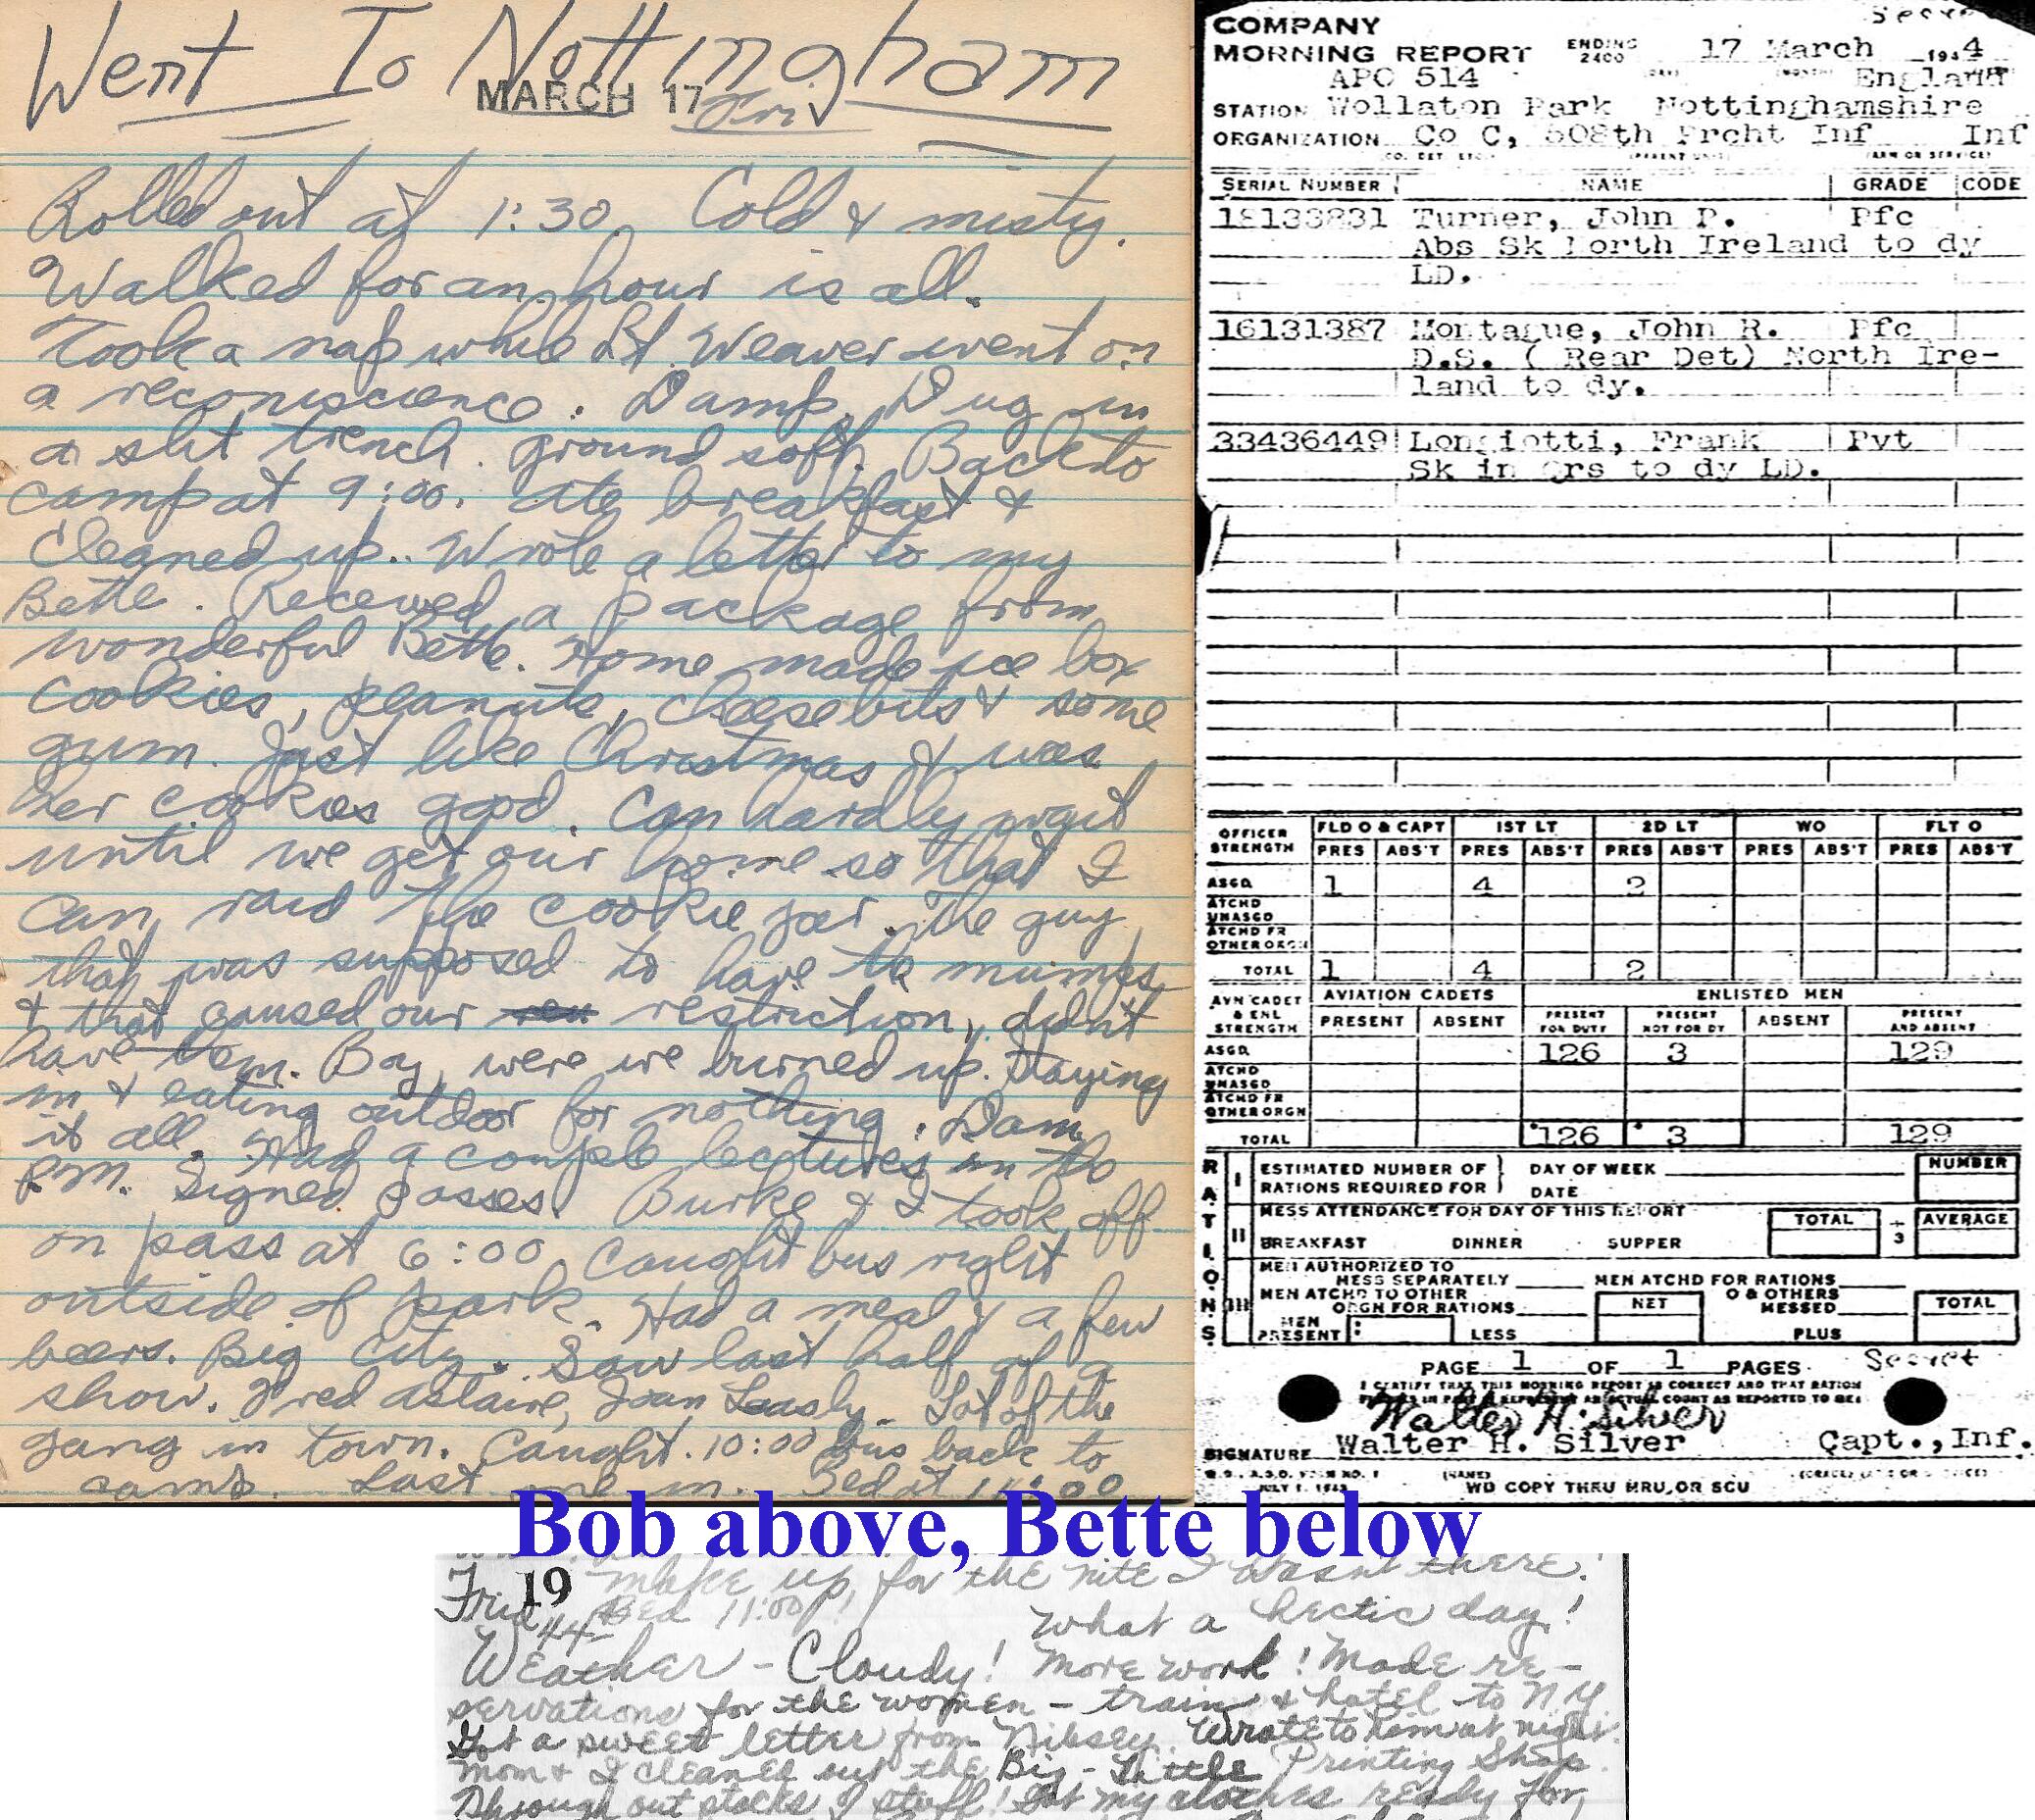 Went To Nottingham
MARCH 17
Fri.
Rolled out at 1:30. Cold & misty.
Walked for an hour is all.
Took a nap while Lt. Weaver went on
a reconiscence. Damp. Dug in
a slit trench. ground soft. Back to
camp at 9:00. Ate breakfast &
cleaned up.. Wrote a letter to my
Bette. Received a package from
wonderful Bette. Home made ice box
cookies, peanuts, cheese bits & some
gum. Just like Christmas & was
her cookies good. Can hardly wait
until we get our home so that I
can raid the cookie jar. The guy
that was supposed to have the mumps
& that caused our restriction, didn't
have them. Boy, were we burned up. Staying
in & eating outdoor for nothing. Dam
it all. Had a couple lectures in the
P.M. Signed passes. Burke & I took off
on pass at 6:00 Caught bus right
outside of park. Had a meal & a few
beers. Big City. Saw last half of a
show. Fred Astaire, Joan Leasly. Lot of the
gang in town. Caught 10:00 bus back to
camp. Last one in. Bed at 11:00
COMPANY
MORNING REPORT ENDING 2400 17 March 1944
Secret
APO 514 England
STATION Wollaton Park Nottinghamshire
ORGANIZATION Co C, 508th Prcht Inf Inf
SERIAL NUMBER NAME GRADE CODE
18133831 Turner, John P. Pfc
Abs Sk North Ireland to dy
LD.
16131387 Montague, John R. Pfc
D.S. ( Rear Det) North Ire-
land to dy.
33436449 Longiotti, Frank Pvt
Sk in Qrs to dy LD.
OFFICER STRENGTH FLD O & CAPT 1ST LT 2D LT WO FLT O
PRES ABS'T PRES ABS'T PRES ABS'T PRES ABS'T PRES ABS'T
ASGD. 1 4 2
ATCHD UNASGD
ATCHD FR OTHER ORGN
TOTAL 1 4 2
AVN CADET & ENL STRENGTH AVIATION CADETS ENLISTED MEN
PRESENT ABSENT PRESENT FOR DUTY PRESENT NOT FOR DY ABSENT PRESENT AND ABSENT
ASGD. 126 3 129
ATCHD UNASGD
ATCHD FR OTHER ORGN
TOTAL 126 3 129
RATIONS
I ESTIMATED NUMBER OF RATIONS REQUIRED FOR DAY OF WEEK NUMBER
DATE
II MESS ATTENDANCE FOR DAY OF THIS REPORT TOTAL ÷ 3 AVERAGE
BREAKFAST DINNER SUPPER
III MEN AUTHORIZED TO MESS SEPARATELY MEN ATCHD FOR RATIONS
MEN ATCHD TO OTHER ORGN FOR RATIONS NET O & OTHERS MESSED TOTAL
MEN PRESENT LESS PLUS
PAGE 1 OF 1 PAGES Secret
I CERTIFY THAT THIS MORNING REPORT IS CORRECT AND THAT RATION
Walter H. Silver
SIGNATURE Walter H. Silver Capt., Inf.
JULY 1, 1943 WD COPY THRU MRU, OR SCU
Bob above, Bette below
19 make up, for the nite I wasn't there!
Frid 44 Bed 11:00 What a hectic day!
Weather - Cloudy! More work! Made re-
servations for the women - train & hotel to NY
Got a sweet letter from Nibsey. Wrote to him at night.
Mom & I cleaned out the Big-Little Printing Shop.
Through out stacks of stuff! Got my clothes ready for